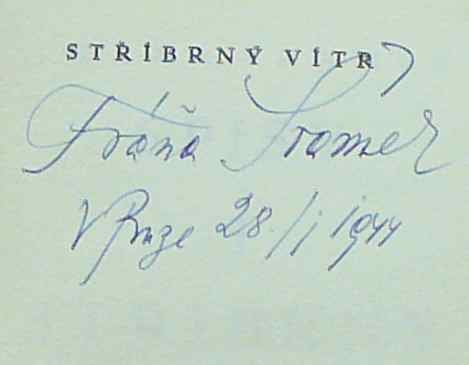 STŘÍBRNÝ VÍTR
Fráňa Šrámek
V Praze 28/I 1944